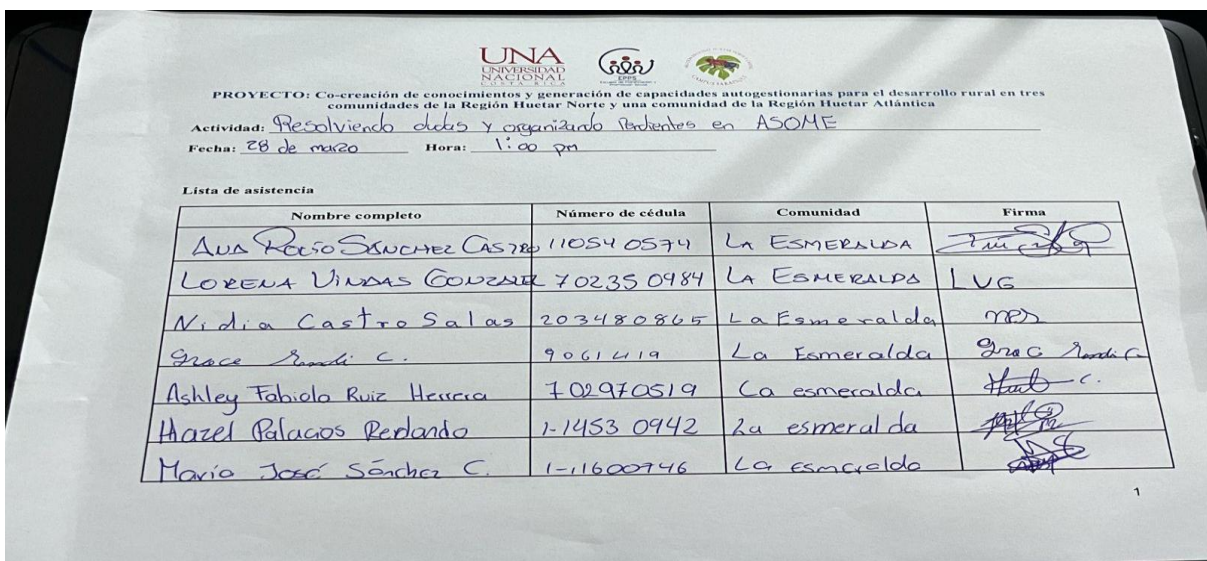 UNA
UNIVERSIDAD
NACIONAL
COSTA RICA
EPPS
PROYECTO: Co-creación de conocimientos y generación de capacidades autogestionarias para el desarrollo rural en tres
comunidades de la Región Huetar Norte y una comunidad de la Región Huetar Atlántica
Actividad: Resolviendo dudas y organizando Pendientes en ASOME
Fecha: 28 de marzo Hora: 1:00 pm
Lista de asistencia
Nombre completo Número de cédula Comunidad Firma
ANA ROCÍO SÁNCHEZ CASTRO 11054 0574 LA ESMERALDA
LORENA VINDAS GONZALEZ 70235 0984 LA ESMERALDA LVG
Nidia Castro Salas 203480865 La Esmeralda
Grace C. 9061419 La Esmeralda Grac C
Ashley Fabiola Ruiz Herrera 702970519 La esmeralda
Hazel Palacios Redondo 1-1453 0942 La esmeralda
María José Sánchez C. 1-11600746 La esmeralda
1